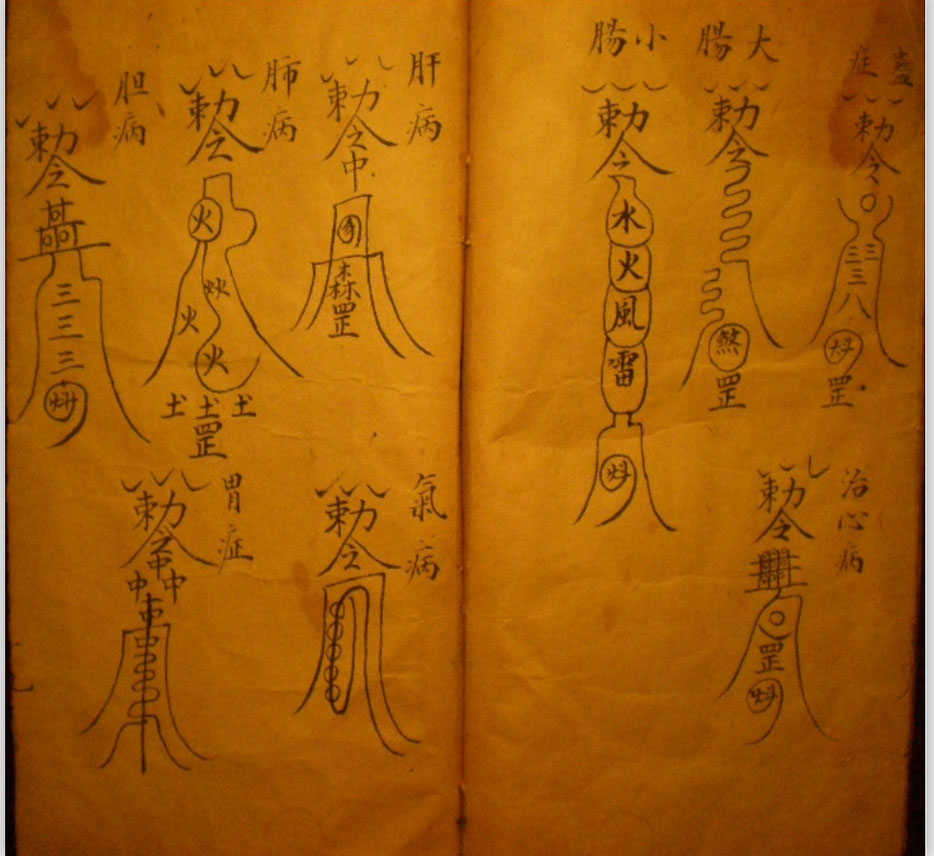 症
勅令
三三三八
罡
大腸
勅令
煞
罡
小腸
勅令
水
火
風
雷
治心病
勅令
罡
肝病
勅令
中
森罡
肺病
勅令
火
炏
火
火
罡
胆病
勅令
三
三
三
氣病
勅令
胃症
勅令
中中中